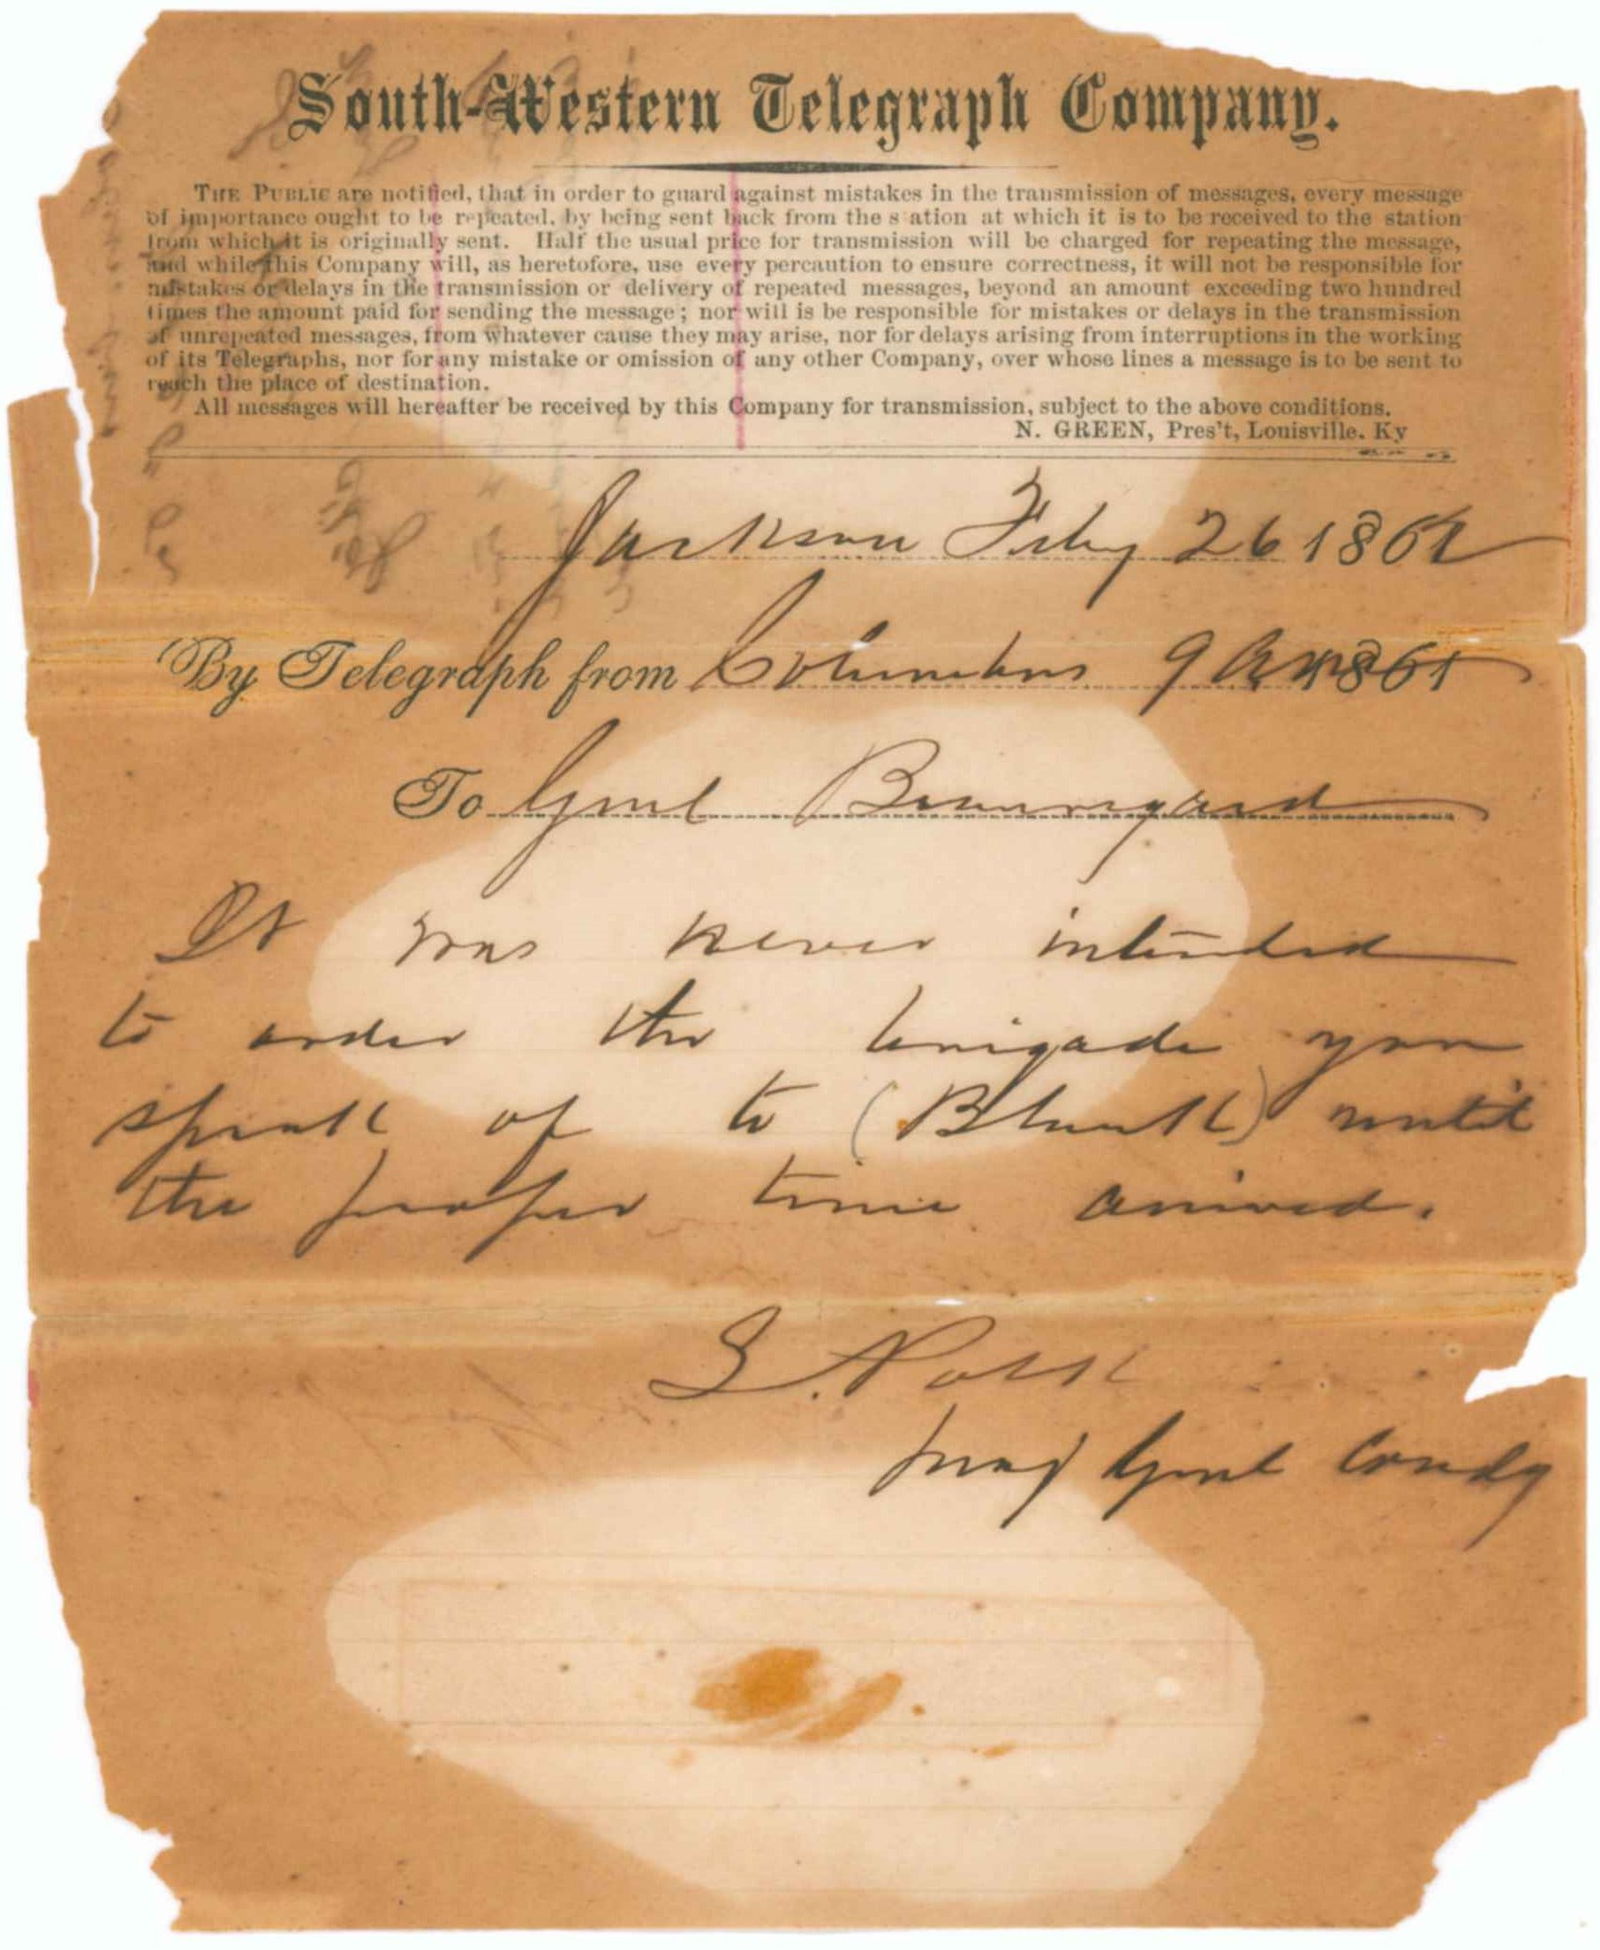 South-Western Telegraph Company.
THE PUBLIC are notified, that in order to guard against mistakes in the transmission of messages, every message
of importance ought to be repeated, by being sent back from the s ation at which it is to be received to the station
from which it is originally sent. Half the usual price for transmission will be charged for repeating the message,
and while this Company will, as heretofore, use every percaution to ensure correctness, it will not be responsible for
mistakes or delays in the transmission or delivery of repeated messages, beyond an amount exceeding two hundred
times the amount paid for sending the message; nor will is be responsible for mistakes or delays in the transmission
of unrepeated messages, from whatever cause they may arise, nor for delays arising from interruptions in the working
of its Telegraphs, nor for any mistake or omission of any other Company, over whose lines a message is to be sent to
reach the place of destination.
All messages will hereafter be received by this Company for transmission, subject to the above conditions.
N. GREEN, Pres't, Louisville. Ky
Jackson Feby 26 1862
By Telegraph from Columbus 9 Am 1861
To Genl Beauregard
It was never intended
to order the brigade you
speak of to (Blank) until
the proper time arrived.
L. Polk
Maj Genl Comdg